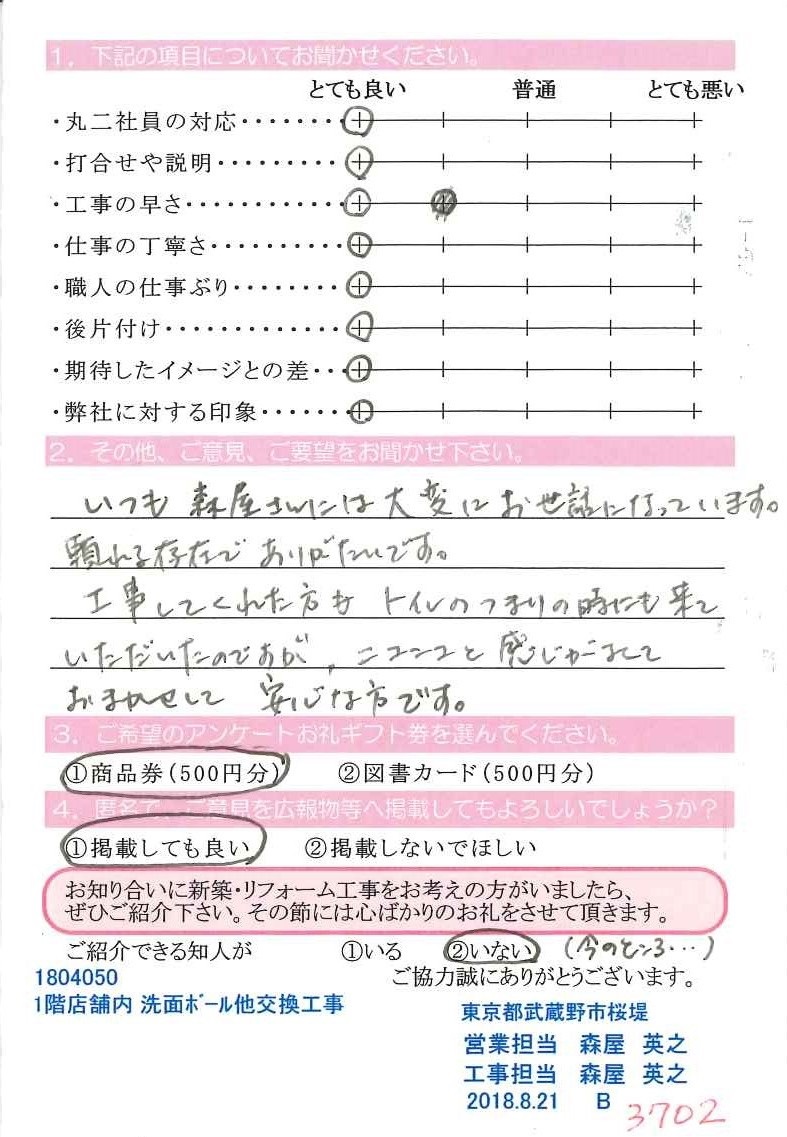 1. 下記の項目についてお聞かせください。
とても良い 普通 とても悪い
・丸二社員の対応・・・・・・・
・打合せや説明・・・・・・・・・
・工事の早さ・・・・・・・・・・・
・仕事の丁寧さ・・・・・・・・・
・職人の仕事ぶり・・・・・・・・
・後片付け・・・・・・・・・・・・・
・期待したイメージとの差・・・
・弊社に対する印象・・・・・・・
2. その他、ご意見、ご要望をお聞かせ下さい。
いつも森屋さんには大変にお世話になっています。
頼れる存在でありがたいです。
工事してくれた方もトイレのつまりの時にも来て
いただいたのですが、ニコニコと感じがよくて
おまかせして安心な方です。
3. ご希望のアンケートお礼ギフト券を選んでください。
①商品券(500円分) ②図書カード(500円分)
4. 匿名で、ご意見を広報物等へ掲載してもよろしいでしょうか?
①掲載しても良い ②掲載しないでほしい
お知り合いに新築・リフォーム工事をお考えの方がいましたら、
ぜひご紹介下さい。その節には心ばかりのお礼をさせて頂きます。
ご紹介できる知人が ①いる ②いない (今のところ・・・)
ご協力誠にありがとうございます。
1804050
1階店舗内 洗面ボール他交換工事
東京都武蔵野市桜堤
営業担当 森屋 英之
工事担当 森屋 英之
2018.8.21 B
3702